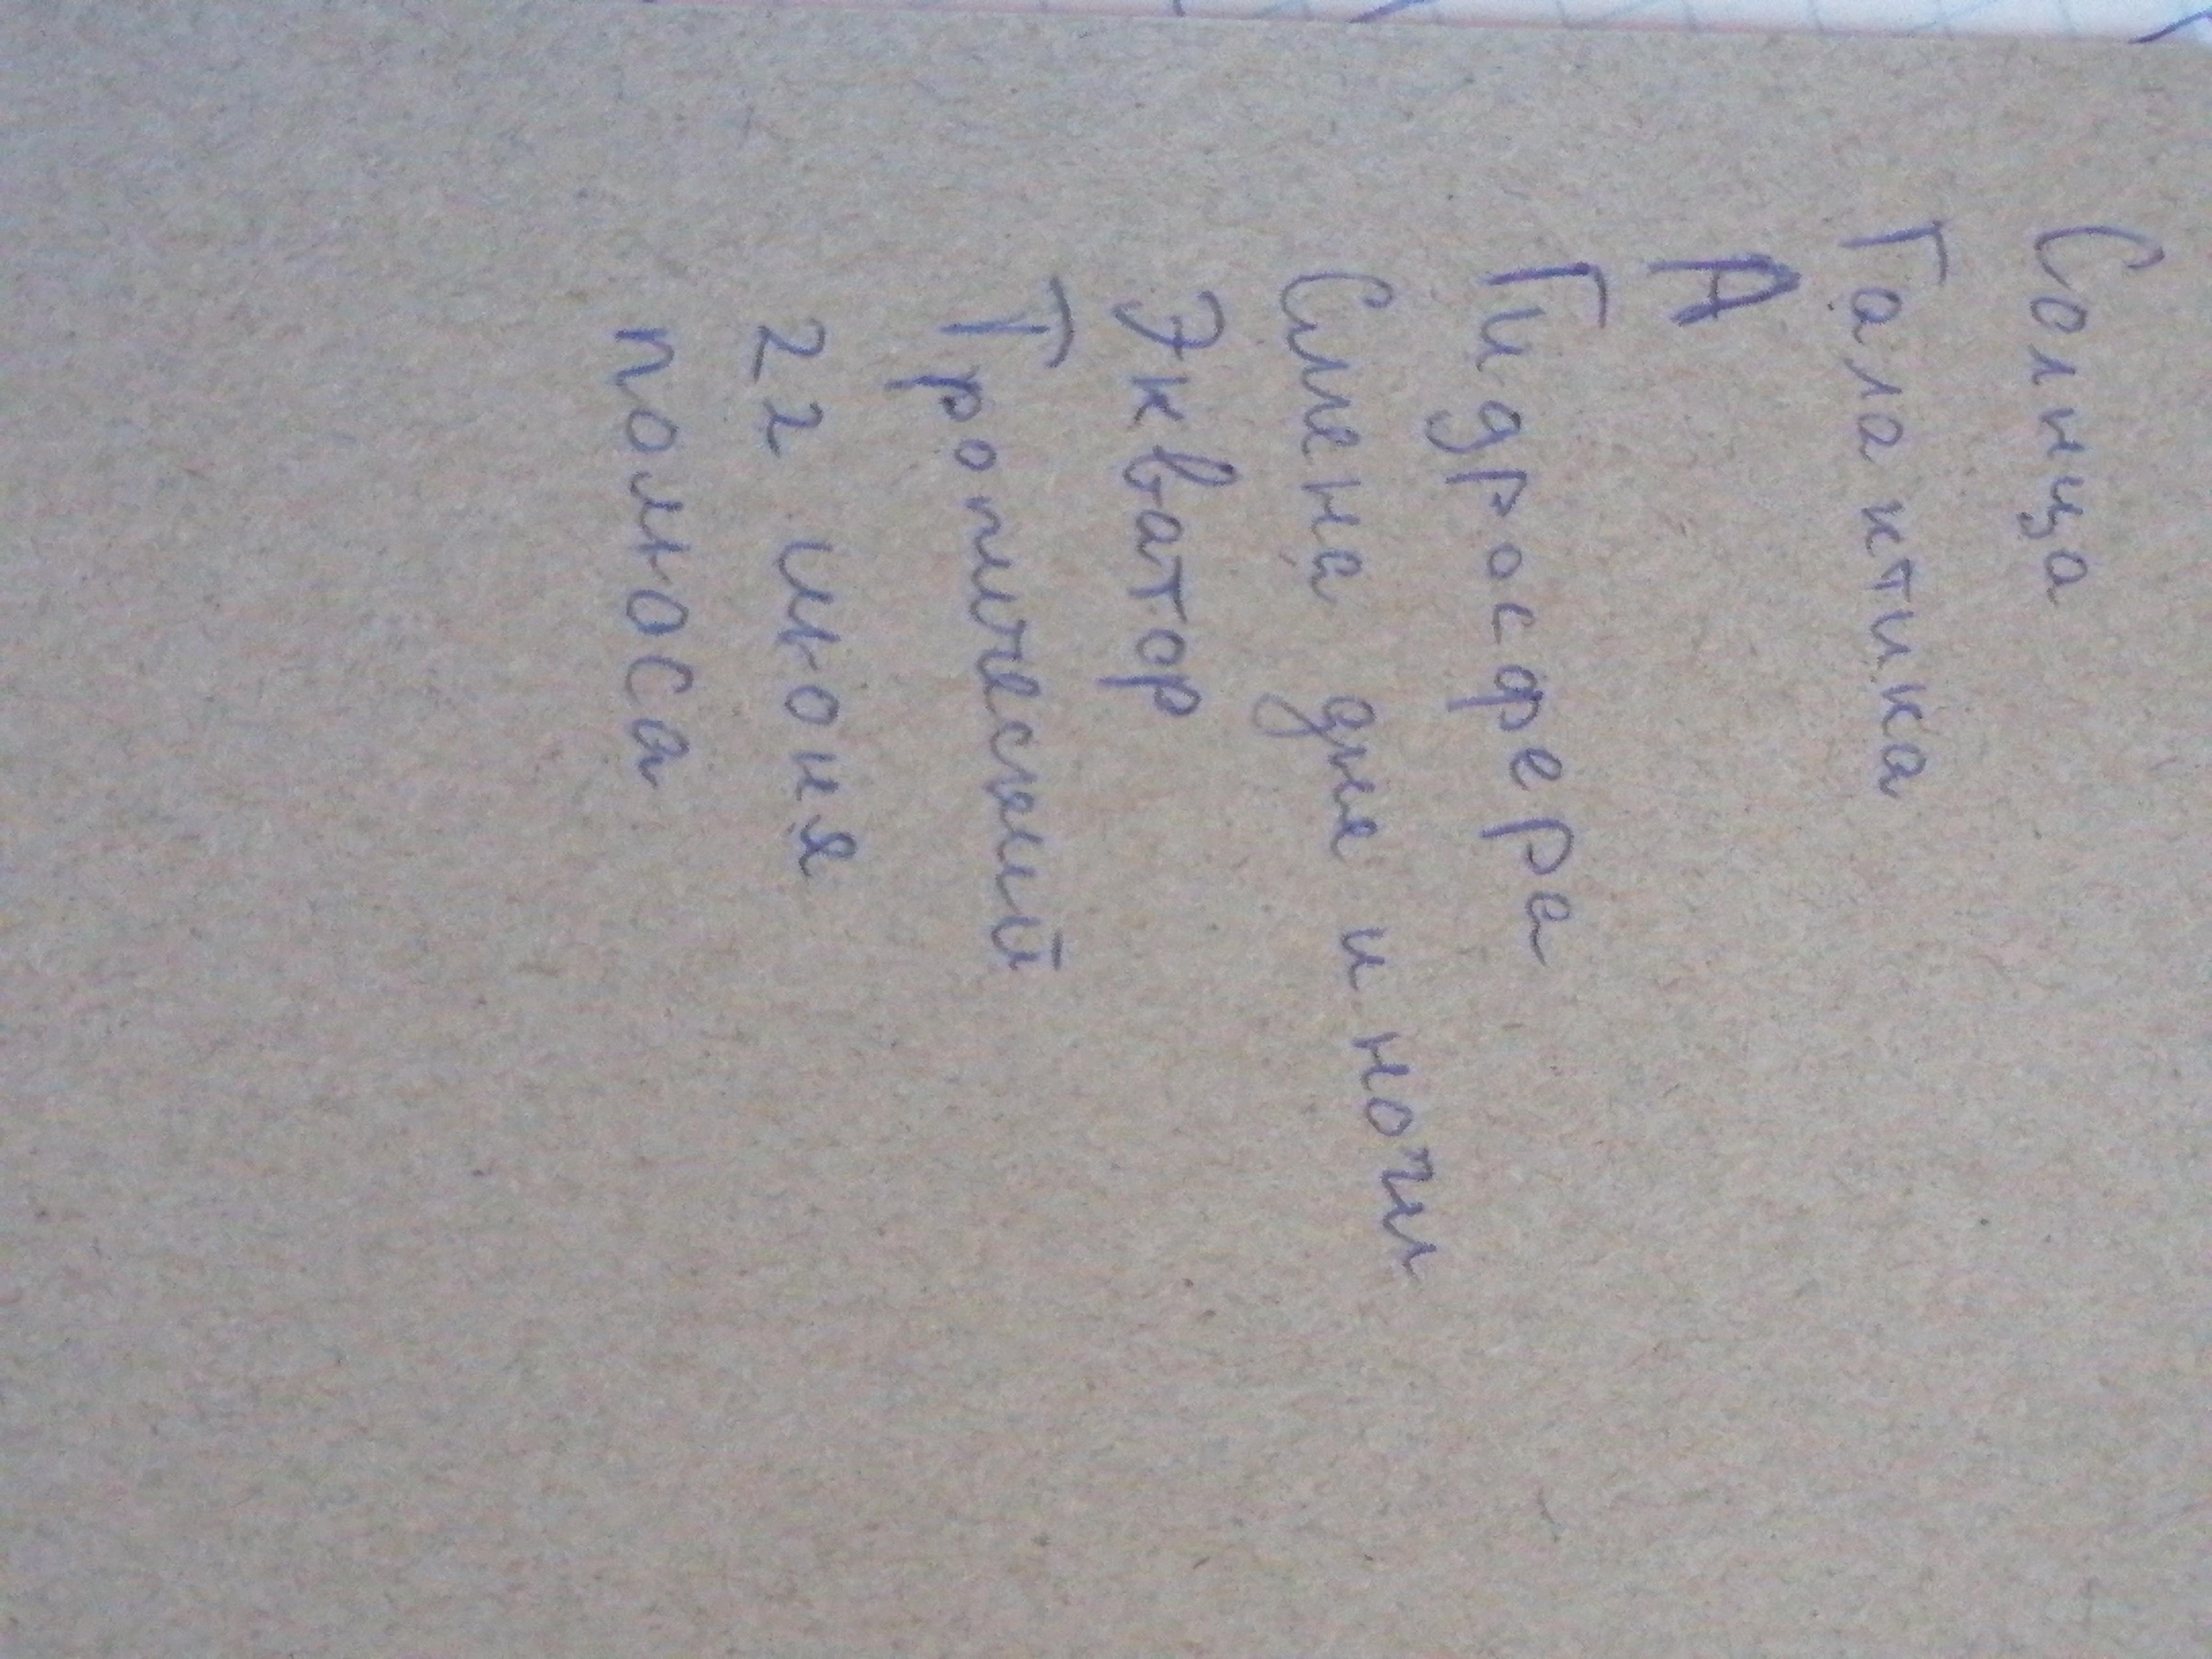 Солнца
Галактика
А
Гидросфера
Смена дне и ночи
Экватор
Тропический
22 июня
полюса